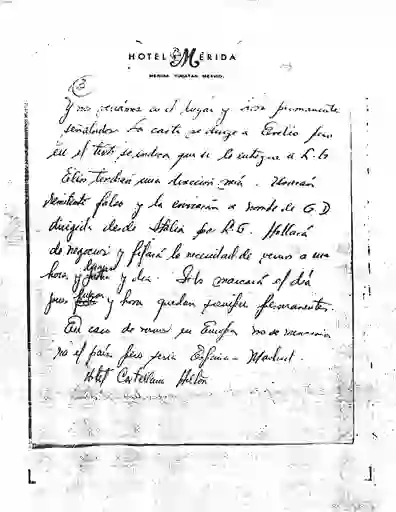 HOTEL MÉRIDA
MERIDA, YUCATAN, MEXICO.
3
Y nos veremos en el lugar y hora previamente
señalados. La carta se dirige a Evelio pero
en el texto se indica que se le entregue a L.G.
Ellos tendrán una dirección mía. Usarán
remitente falso y la enviarán a nombre de G.D
dirigida desde Italia por L.G. Hablará
de negocios y fijará la necesidad de vernos a una
hora y día. Solo marcará el día
pues lugar y hora quedan siempre permanentes.
En caso de vernos en Europa no se menciona
no el país pero sería España - Madrid.
Hotel Castellana Hilton